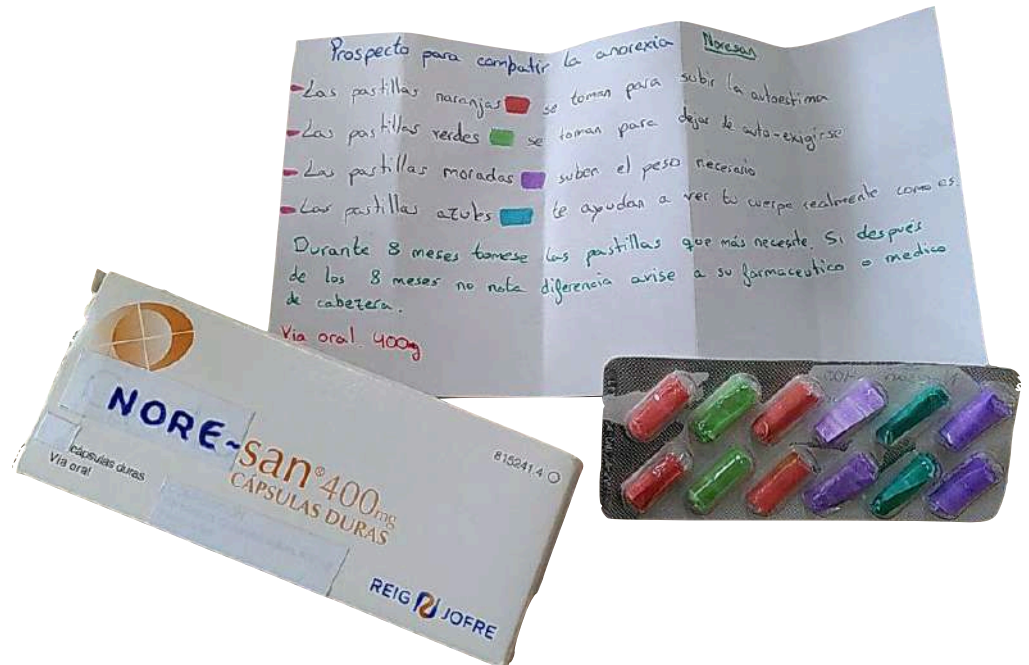 Prospecto para combatir la anorexia Noresan
-Las pastillas naranjas se toman para subir la autoestima
-Las pastillas verdes se toman para dejar de auto-exigirse
-Las pastillas moradas suben el peso necesario
-Las pastillas azules te ayudan a ver tu cuerpo realmente como es.
Durante 8 meses tomese las pastillas que más necesite. Si después
de los 8 meses no nota diferencia avise a su farmaceutico o medico
de cabezera.
Via oral. 400g
NORE~san® 400mg
CÁPSULAS DURAS
815241.4
cápsulas duras
Vía oral
REIG JOFRE